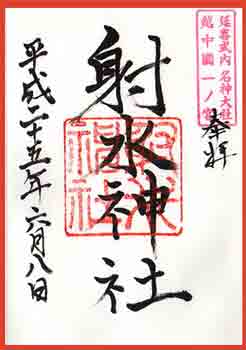 延喜式内 名神大社
越中國一ノ宮
奉拝
射水神社
平成二十五年六月八日